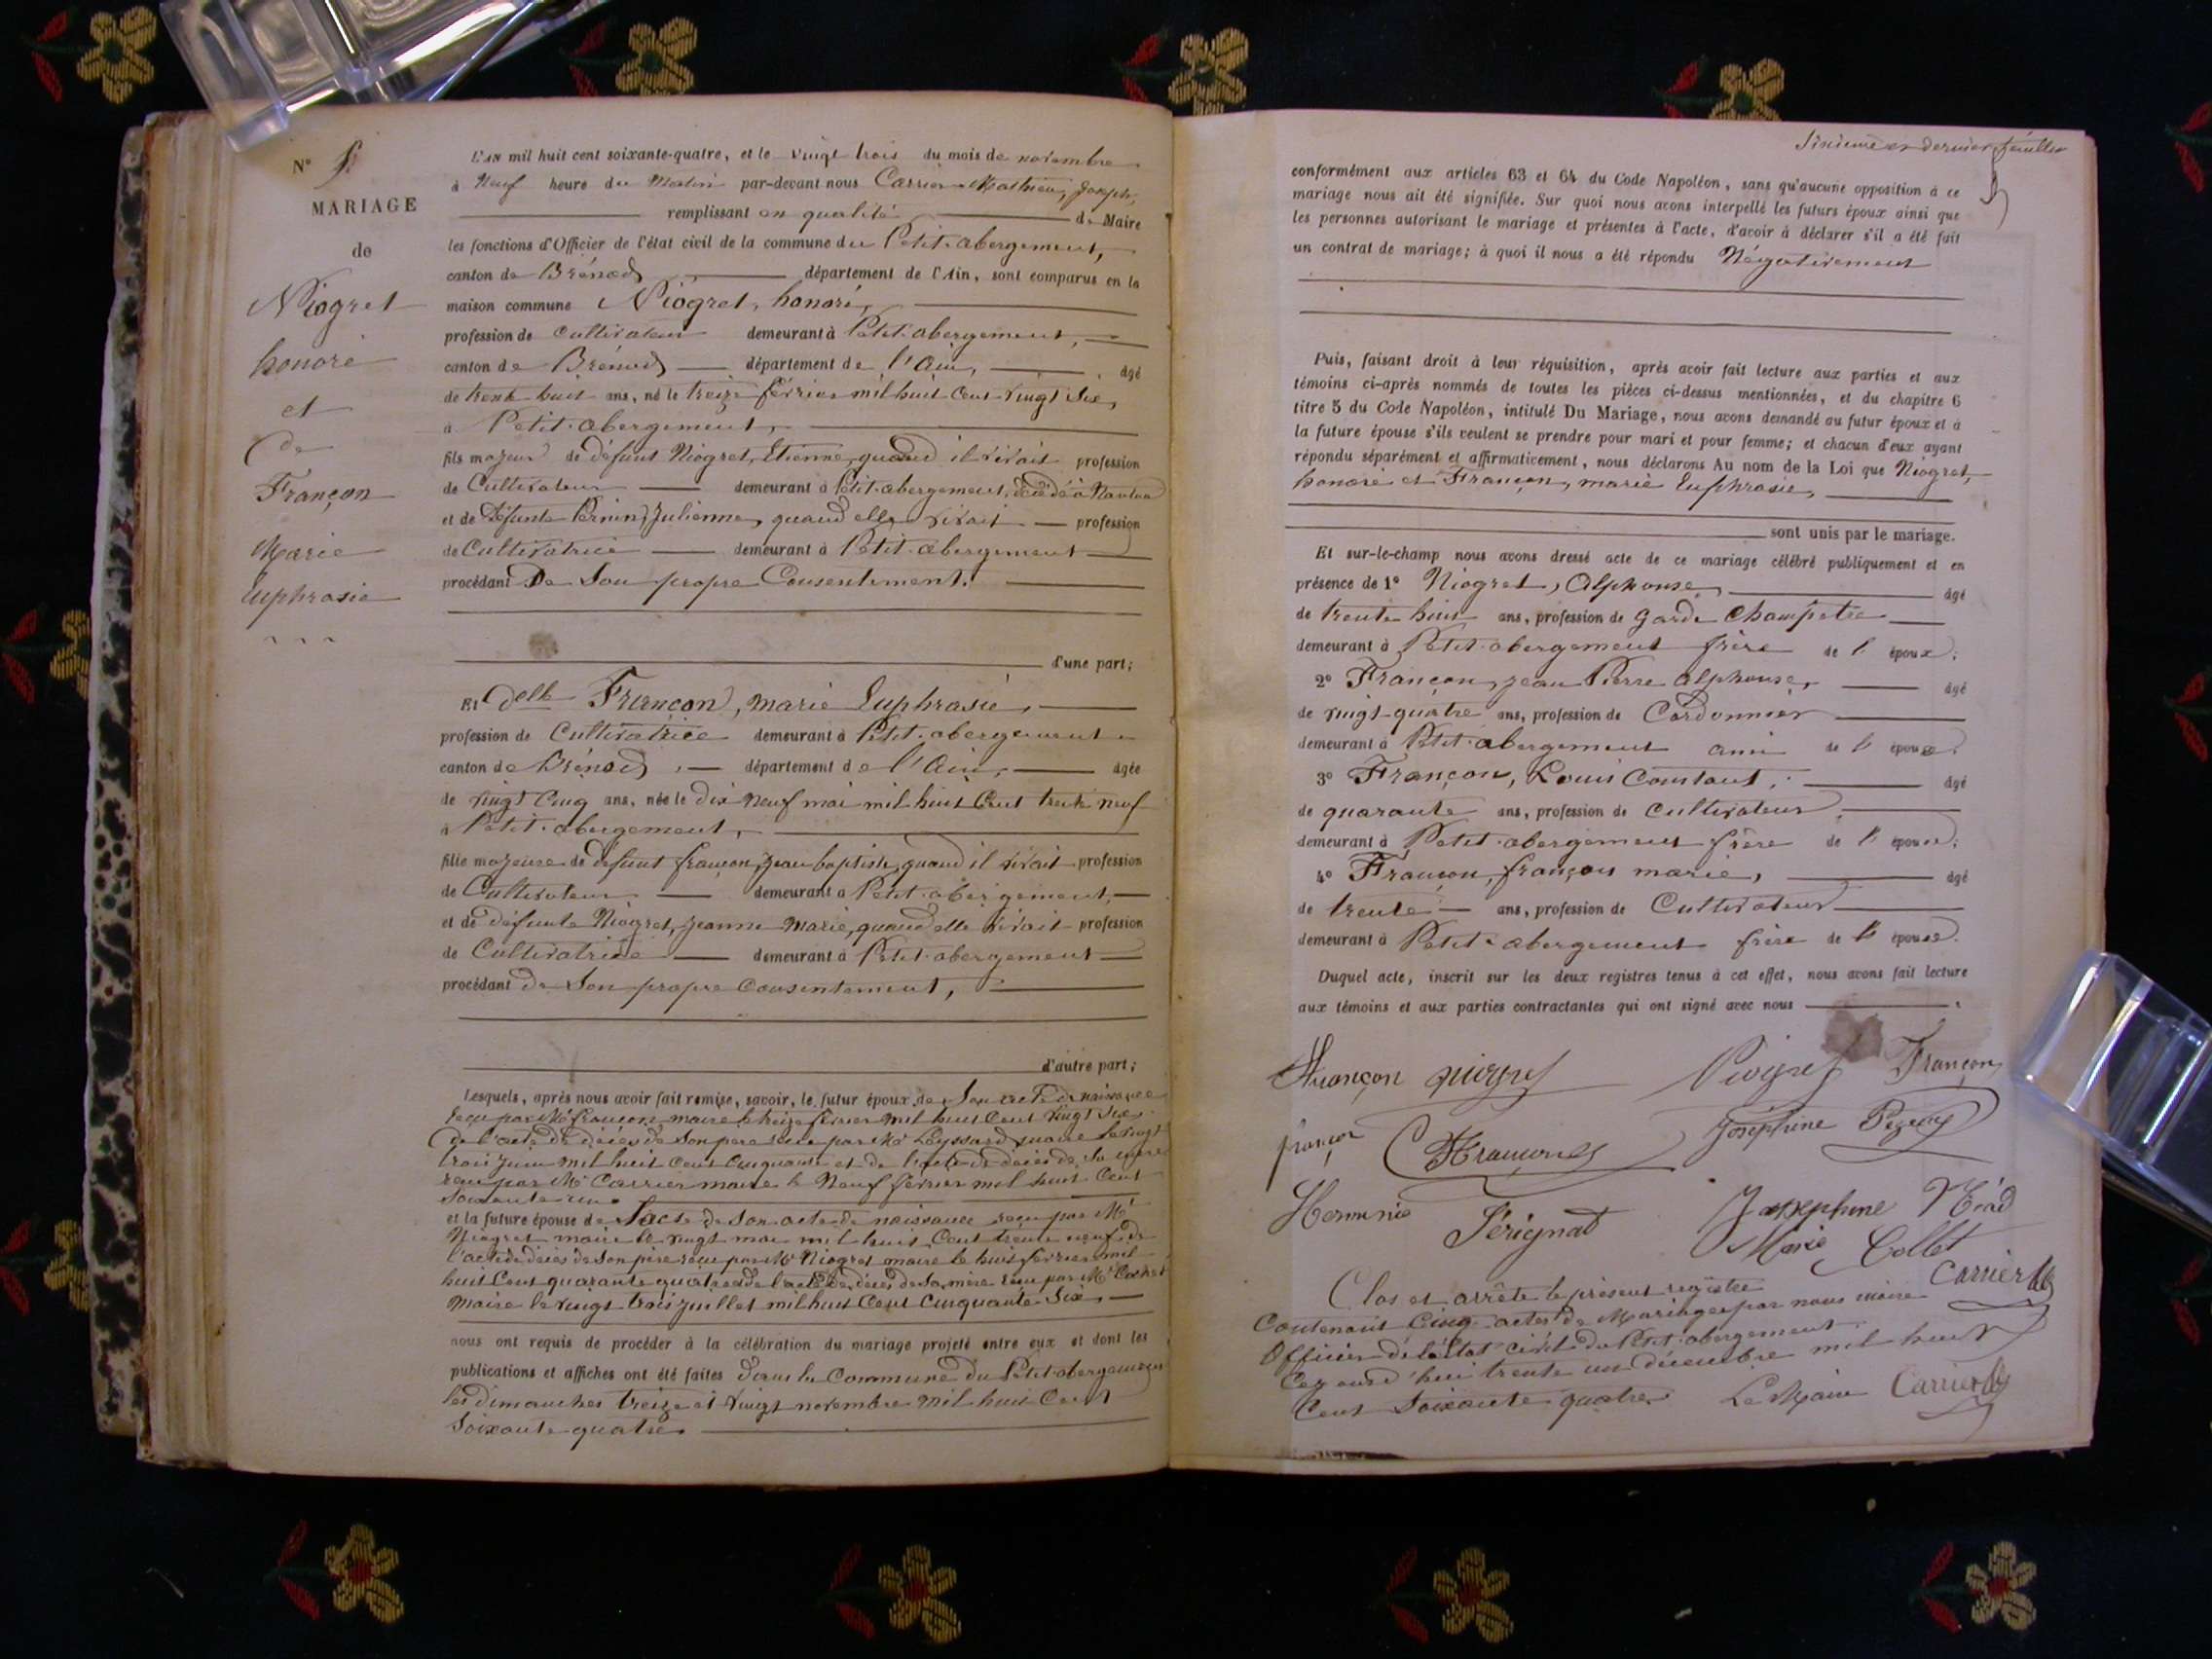 N° 5
MARIAGE
de
Niogret
honoré
et
de
Françon
Marie
Euphrasie
L'AN mil huit cent soixante-quatre, et le vingt trois du mois de novembre
à Neuf heure du Matin par-devant nous Carrier Mathieu, Joseph,
remplissant en qualité de Maire
les fonctions d'Officier de l'état civil de la commune du Petit-abergement,
canton de Brénod département de l'Ain, sont comparus en la
maison commune Niogret, honoré,
profession de Cultivateur demeurant à Petit-abergement,
canton de Brénod département de l'Ain, âgé
de trente huit ans, né le treize février mil huit Cent vingt Six,
à Petit-abergement,
fils majeur de défunt Niogret, Etienne, quand il vivait profession
de Cultivateur demeurant à Petit-abergement, décédé à Nantua
et de défunte Pernin, Julienne, quand elle vivait profession
de Cultivatrice demeurant à Petit-abergement
procédant De Son propre Consentement.
d'une part;
Et delle Françon, marie Euphrasie,
profession de Cultivatrice demeurant à Petit-abergement
canton de Brénod, département de l'Ain, âgée
de vingt Cinq ans, née le dix neuf mai mil huit Cent trente neuf
à Petit-abergement,
fille majeure de défunt françon, jean baptiste, quand il vivait profession
de Cultivateur demeurant à Petit-abergement,
et de défunte Niogret, jeanne marie, quand elle vivait profession
de Cultivatrice demeurant à Petit-abergement
procédant de Son propre Consentement,
d'autre part;
Lesquels, après nous avoir fait remise, savoir, le futur époux de Son acte de naissance
reçu par Mr françon maire le treize février mil huit Cent vingt Six
de l'acte de décès de Son père reçu par Mr Leyssard maire le vingt
trois juin mil huit Cent Cinquante et de l'acte de décès de Sa mère
reçu par Mr Carrier maire le Neuf février mil huit Cent
Soixante un.
et la future épouse de l'acte de Son acte de naissance reçu par Mr
Niogret maire le vingt mai mil huit Cent trente neuf de
l'acte de décès de Son père reçu par Mr Niogret maire le huit février mil
huit Cent quarante quatre et de l'acte de décès de Sa mère reçu par Mr
maire le vingt trois juillet mil huit Cent Cinquante Six,
nous ont requis de procéder à la célébration du mariage projeté entre eux et dont les
publications et affiches ont été faites dans la Commune du Petit-abergement
les dimanches treize et vingt novembre mil huit Cent
Soixante quatre.
Sixième et dernier feuillet
conformément aux articles 63 et 64 du Code Napoléon, sans qu'aucune opposition à ce
mariage nous ait été signifiée. Sur quoi nous avons interpellé les futurs époux ainsi que
les personnes autorisant le mariage et présentes à l'acte, d'avoir à déclarer s'il a été fait
un contrat de mariage; à quoi il nous a été répondu Négativement
Puis, faisant droit à leur réquisition, après avoir fait lecture aux parties et aux
témoins ci-après nommés de toutes les pièces ci-dessus mentionnées, et du chapitre 6
titre 5 du Code Napoléon, intitulé Du Mariage, nous avons demandé au futur époux et à
la future épouse s'ils veulent se prendre pour mari et pour femme; et chacun d'eux ayant
répondu séparément et affirmativement, nous déclarons Au nom de la Loi que Niogret,
honoré et Françon, marie Euphrasie,
sont unis par le mariage.
Et sur-le-champ nous avons dressé acte de ce mariage célébré publiquement et en
présence de 1° Niogret, Alphonse, âgé
de trente huit ans, profession de garde Champêtre
demeurant à Petit-abergement frère de l' époux;
2° Françon, jean Pierre alphonse, âgé
de vingt-quatre ans, profession de Cordonnier
demeurant à Petit-abergement ami de l' épouse;
3° Françon, Louis Constant, âgé
de quarante ans, profession de Cultivateur,
demeurant à Petit-abergement frère de l' épouse;
4° Françon, françois marie, âgé
de trente ans, profession de Cultivateur
demeurant à Petit-abergement frère de l' épouse.
Duquel acte, inscrit sur les deux registres tenus à cet effet, nous avons fait lecture
aux témoins et aux parties contractantes qui ont signé avec nous
Françon niogret Niogret Françon
françon Françon Joséphine
Herminie Sérignat Josephine
Marie Collet
Carrier
Clos et arrêté le présent registre
Contenant Cinq actes de Mariage par nous maire
Officier de l'État Civil du Petit-abergement
Cejourd'hui trente un décembre mil huit
Cent Soixante quatre Le Maire Carrier